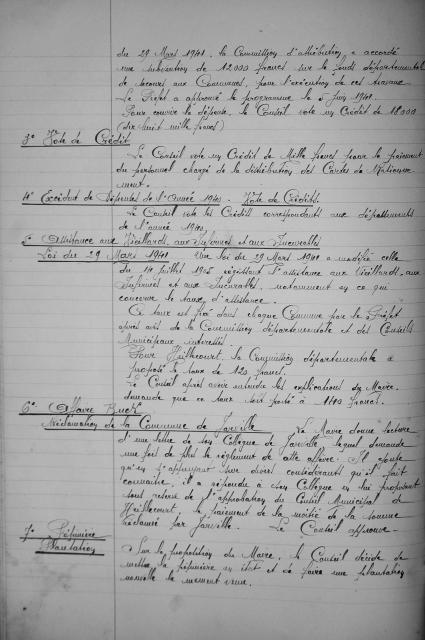 du 29 Mars 1941, la Commission d'attribution, a accordé
une subvention de 12000 francs sur le fonds départemental
de secours aux Communes, pour l'exécution de ces travaux.
Le Préfet a approuvé le programme le 5 Juin 1941.
Pour couvrir la dépense, le Conseil vote un Crédit de 18.000
(dix huit mille francs)
3° Vote de Crédit
Le Conseil vote un Crédit de Mille francs pour le paiement
du personnel chargé de la distribution des Cartes de Rationne-
ment.
4° Excédent de Dépenses de l'Année 1940. Vote de Crédits.
Le Conseil vote les Crédits correspondants aux dépassements
de l'année 1940.
5° Assistance aux Vieillards, aux Infirmes et aux Incurables
Loi du 29 Mars 1941 Une loi du 29 Mars 1941 a modifié celle
du 14 Juillet 1905 régissant l'assistance aux Vieillards, aux
Infirmes et aux Incurables, notamment en ce qui
concerne le taux d'assistance.
Ce taux est fixé dans chaque Commune par le Préfet
après avis de la Commission départementale et des Conseils
Municipaux intéressés.
Pour Heillecourt, la Commission départementale a
proposé le taux de 120 francs.
Le Conseil après avoir entendu les explications du Maire,
demande que ce taux soit porté à 140 francs.
6° Affaire
Réclamation de la Commune de Jarville Le Maire donne lecture
d'une lettre de son Collègue de Jarville lequel demande
une fois de plus le règlement de cette affaire. Il ajoute
qu'en s'appuyant sur divers considérants qu'il fait
connaître, il a répondu à son Collègue en lui proposant
sous réserve de l'approbation du Conseil Municipal de
Heillecourt, le paiement de la moitié de la somme
réclamée par Jarville. Le Conseil approuve.
7° Pépinière
Plantation
Sur la proposition du Maire, le Conseil décide de
mettre la pépinière en état et de faire une plantation
nouvelle le moment venu.